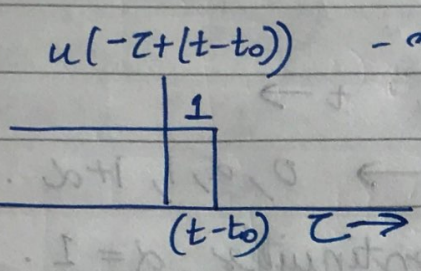 u(-τ+(t-t₀)) -
1
(t-t₀) τ→